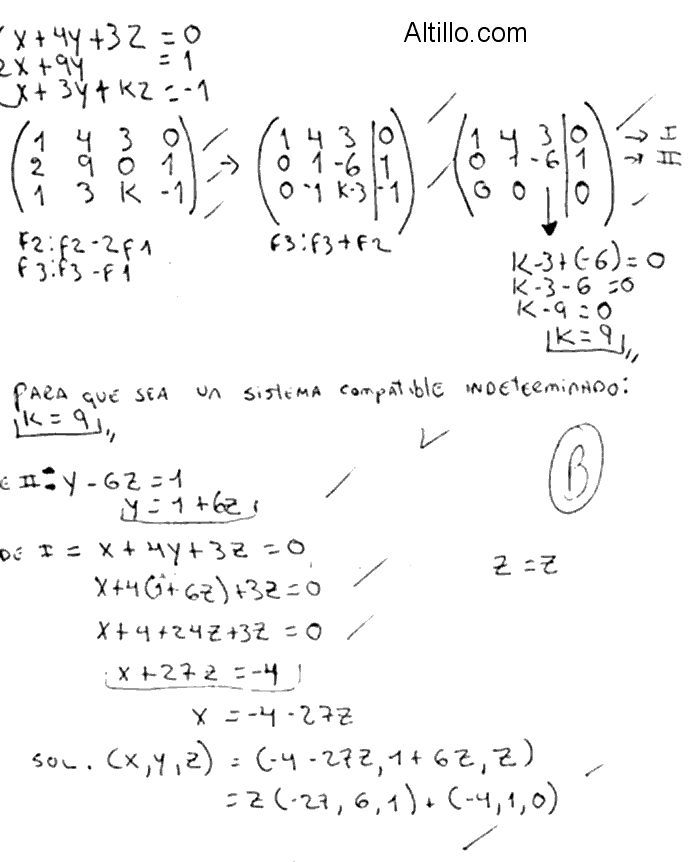 Altillo.com
x + 4y + 3z = 0
2x + 9y = 1
x + 3y + kz = -1
1 4 3 0 → 1 4 3 | 0 1 4 3 | 0 → I
2 9 0 1 0 1 -6 | 1 0 1 -6 | 1 → II
1 3 k -1 0 -1 k-3 | -1 0 0 | 0
F2: F2 - 2F1 F3: F3 + F2
F3: F3 - F1
k - 3 + (-6) = 0
k - 3 - 6 = 0
k - 9 = 0
k = 9
PARA QUE SEA UN SISTEMA COMPATIBLE INDETERMINADO:
k = 9
E II: y - 6z = 1
y = 1 + 6z
B
DE I = x + 4y + 3z = 0
z = z
x + 4(1 + 6z) + 3z = 0
x + 4 + 24z + 3z = 0
x + 27z = -4
x = -4 - 27z
SOL. (x, y, z) = (-4 - 27z, 1 + 6z, z)
= z(-27, 6, 1) + (-4, 1, 0)